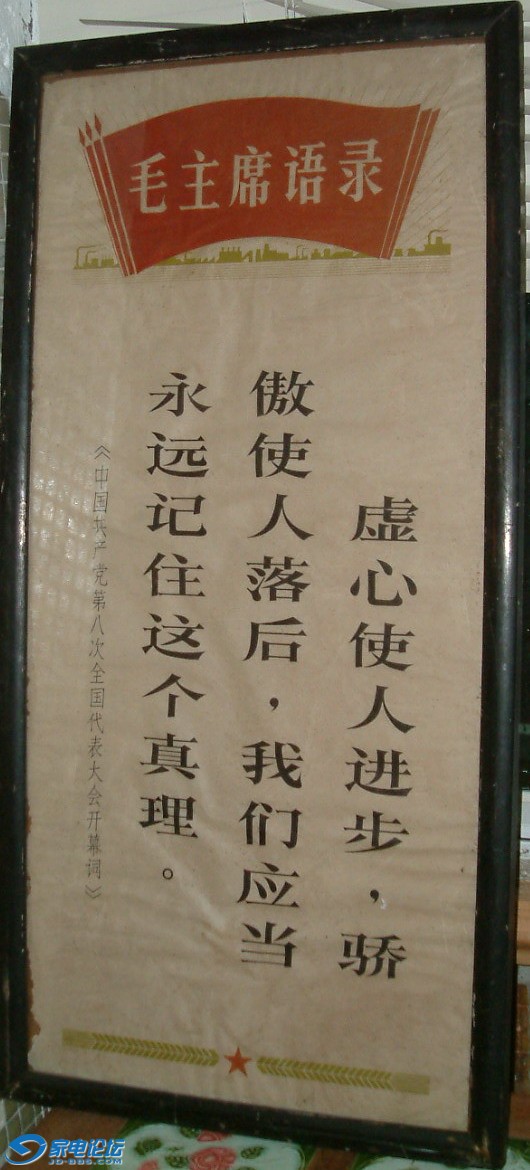 毛主席语录
虚心使人进步，骄
傲使人落后，我们应当
永远记住这个真理。
《中国共产党第八次全国代表大会开幕词》
家电论坛
JD-BBS.COM